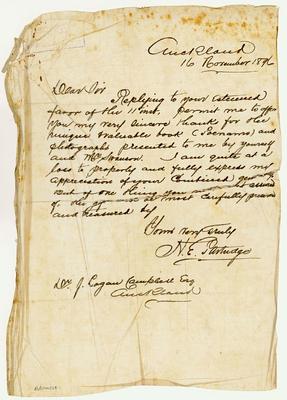 Auckland
16 November 1896
Dear Sir
Replying to your esteemed
favor of the 11 inst, permit me to offer
you my very sincere thanks for the
unique valuable book (Poenamo) and
photographs presented to me by yourself
and Mr Ironson. I am quite at a
loss to properly and fully express my
appreciation of your combined
But of one thing you assured
of the most carefully
and treasured by
Yours very truly
H. E. Partridge
Dr J. Logan Campbell Esq
Auckland